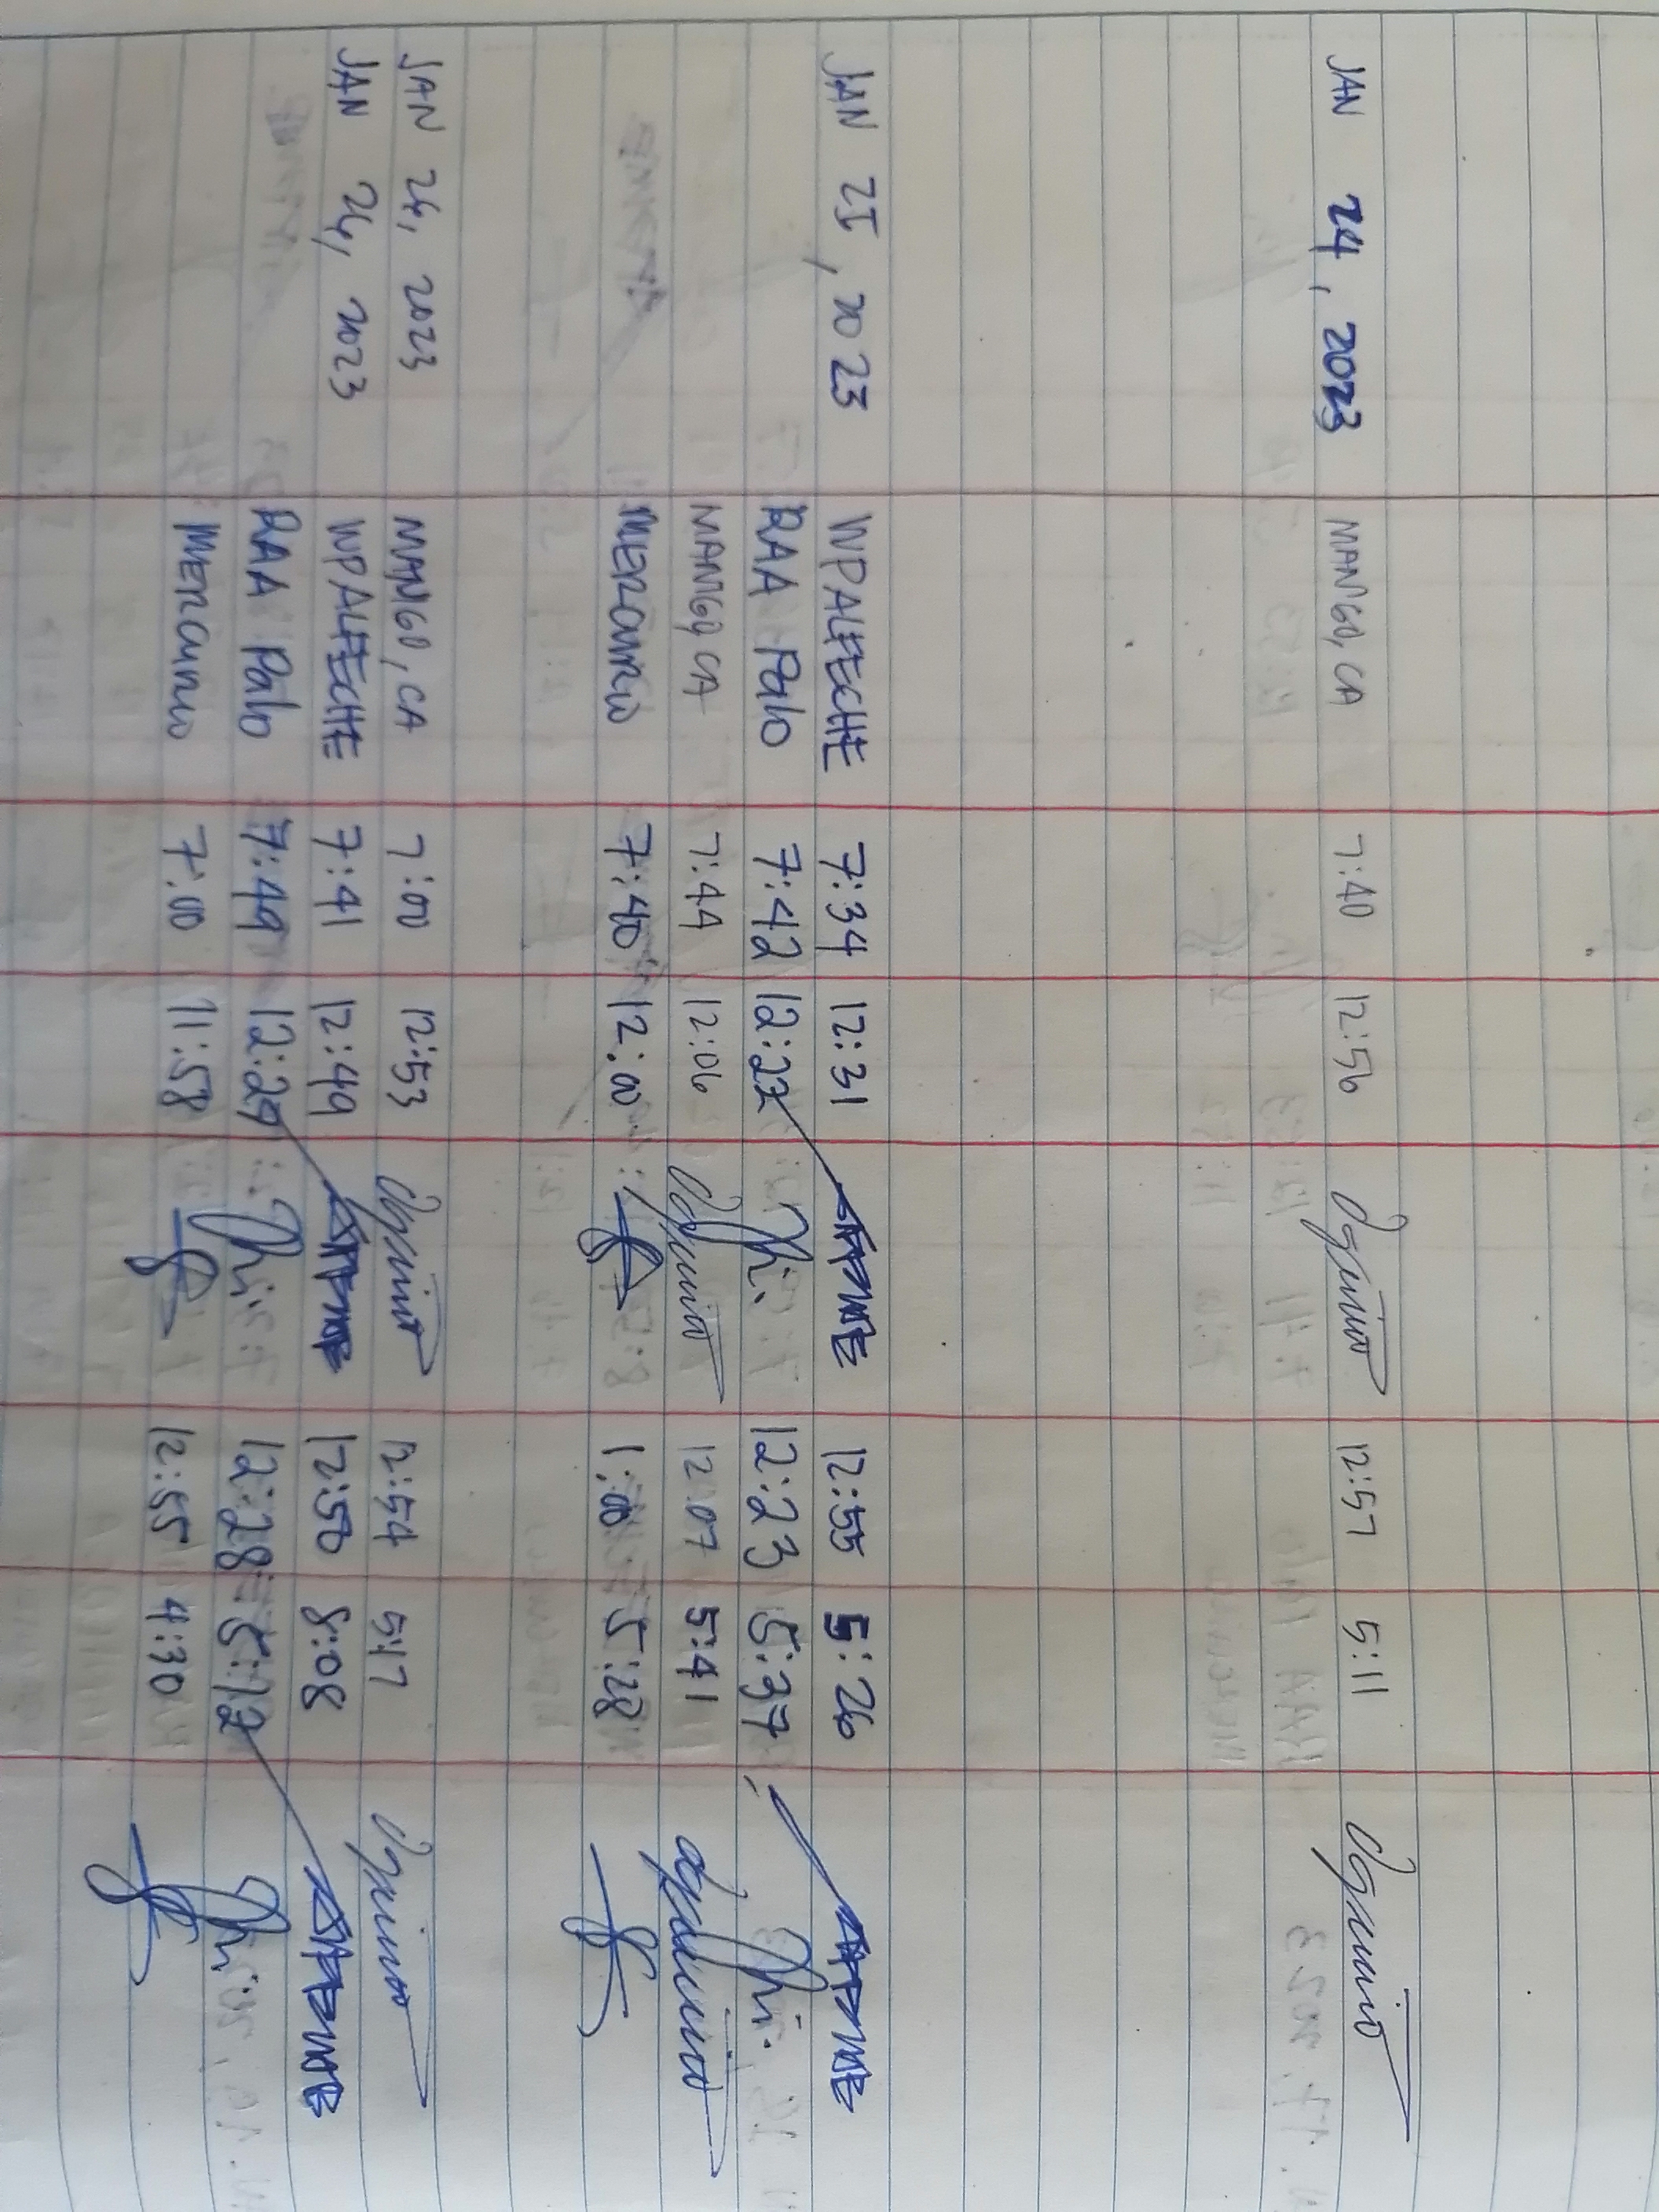 JAN 24, 2023 MANGO, CA 7:40 12:56 12:57 5:11
JAN 25, 2023 WPALFECHE 7:34 12:31 12:55 5:26
RAA Palo 7:42 12:22 12:23 5:37
MANGO, CA 7:44 12:06 12:07 5:41
MERCURIO 7:40 12:00 1:00 5:28
JAN 26, 2023 MANGO, CA 7:00 12:53 12:54 5:17
JAN 26, 2023 WPALFECHE 7:41 12:49 12:50 8:08
RAA Palo 7:49 12:27 12:28 5:12
MERCURIO 7:00 11:58 12:55 4:30